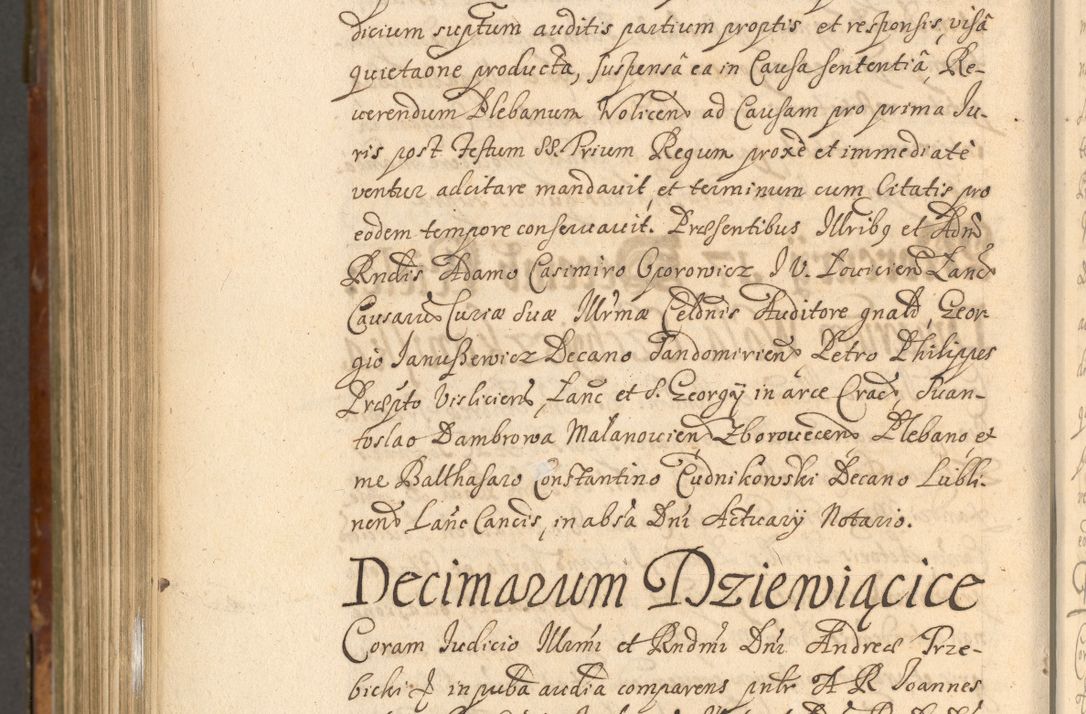 dicium suptum auditis partium proptis et responsis, visâ
quietaone producta, suspensâ ea in Causa sententiâ, Re-
verendum Plebanum Wolicen ad Causam pro prima Ju-
ris post Festum SS. Trium Regum proxe et immediatè
ventur adcitare mandavit, et terminum cum Citatis pro
eodem tempore conservavit. Præsentibus Illribq et Adm
Rndis Adamo Casimiro Oporowicz I V. Lovicien Canc
Causaru Curiæ suæ Illrmæ Celdnis Auditore gnali, Geor-
gio Januszewicz Decano Sandomirien Petro Philippes
Præpto Visliciens, Canc et S. Georgÿ in arce Crac, Swan-
toslao Dambrowa Małanovien Zborovecen Plebano et
me Balthasaro Constantino Cudnikowski Decano Lubli-
nens Canc Cancis, in absâ Dni Actuarÿ Notario.
Decimarum Dziewiącice
Coram Judicio Illrmi et Rndmi Dni Andreæ Trze-
bicki J in puba audîa comparens pntr A R Joannes